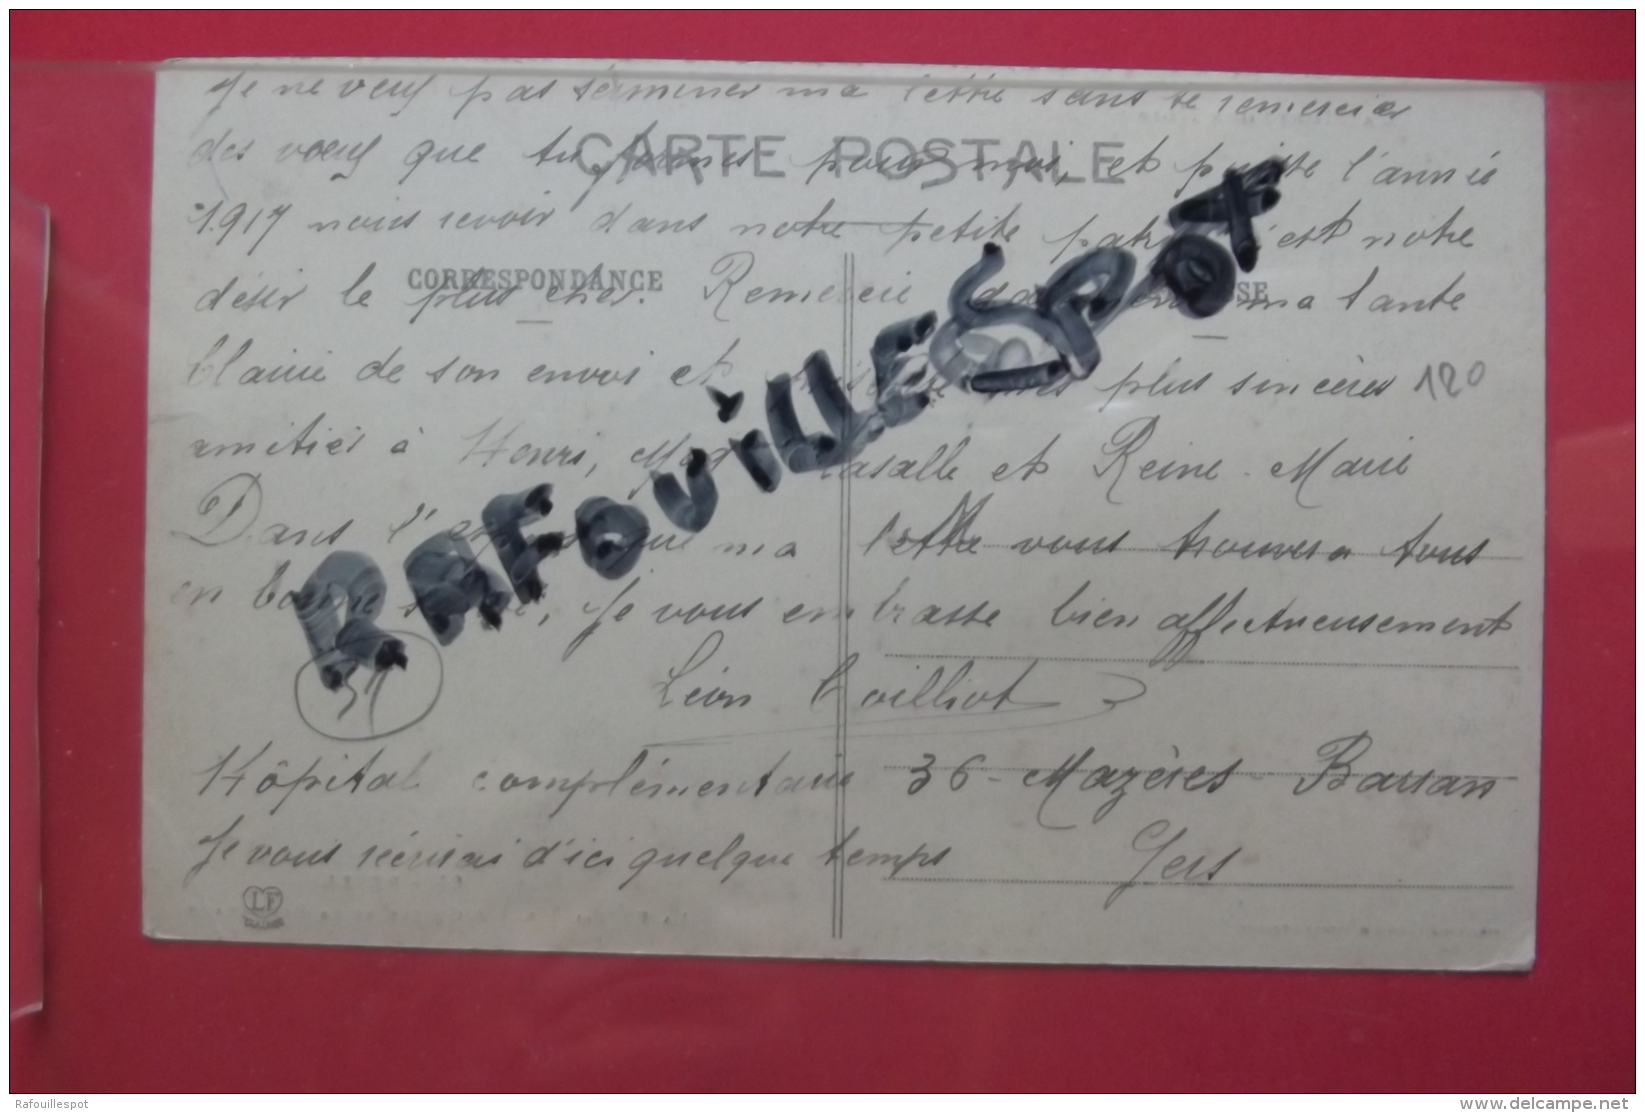 Je ne veux pas terminer ma lettre sans te remercier
CARTE POSTALE
des vœux que tu formes pour moi, et puisse l'année
1917 nous revoir dans notre petite est notre
CORRESPONDANCE
désir le plus cher. Remercie ma tante
de son envoi et plus sincères 120
amitiés à Henri, Lasalle et Reine-Marie
Dans l' que ma lettre vous trouvera tous
en bonne santé, Je vous embrasse bien affectueusement
Léon
Hôpital complémentaire 36 - Mazères - Barran
Je vous récrirai d'ici quelque temps Gers
RAFOUILLESPOT
LF
Rafouillespot
www.delcampe.net